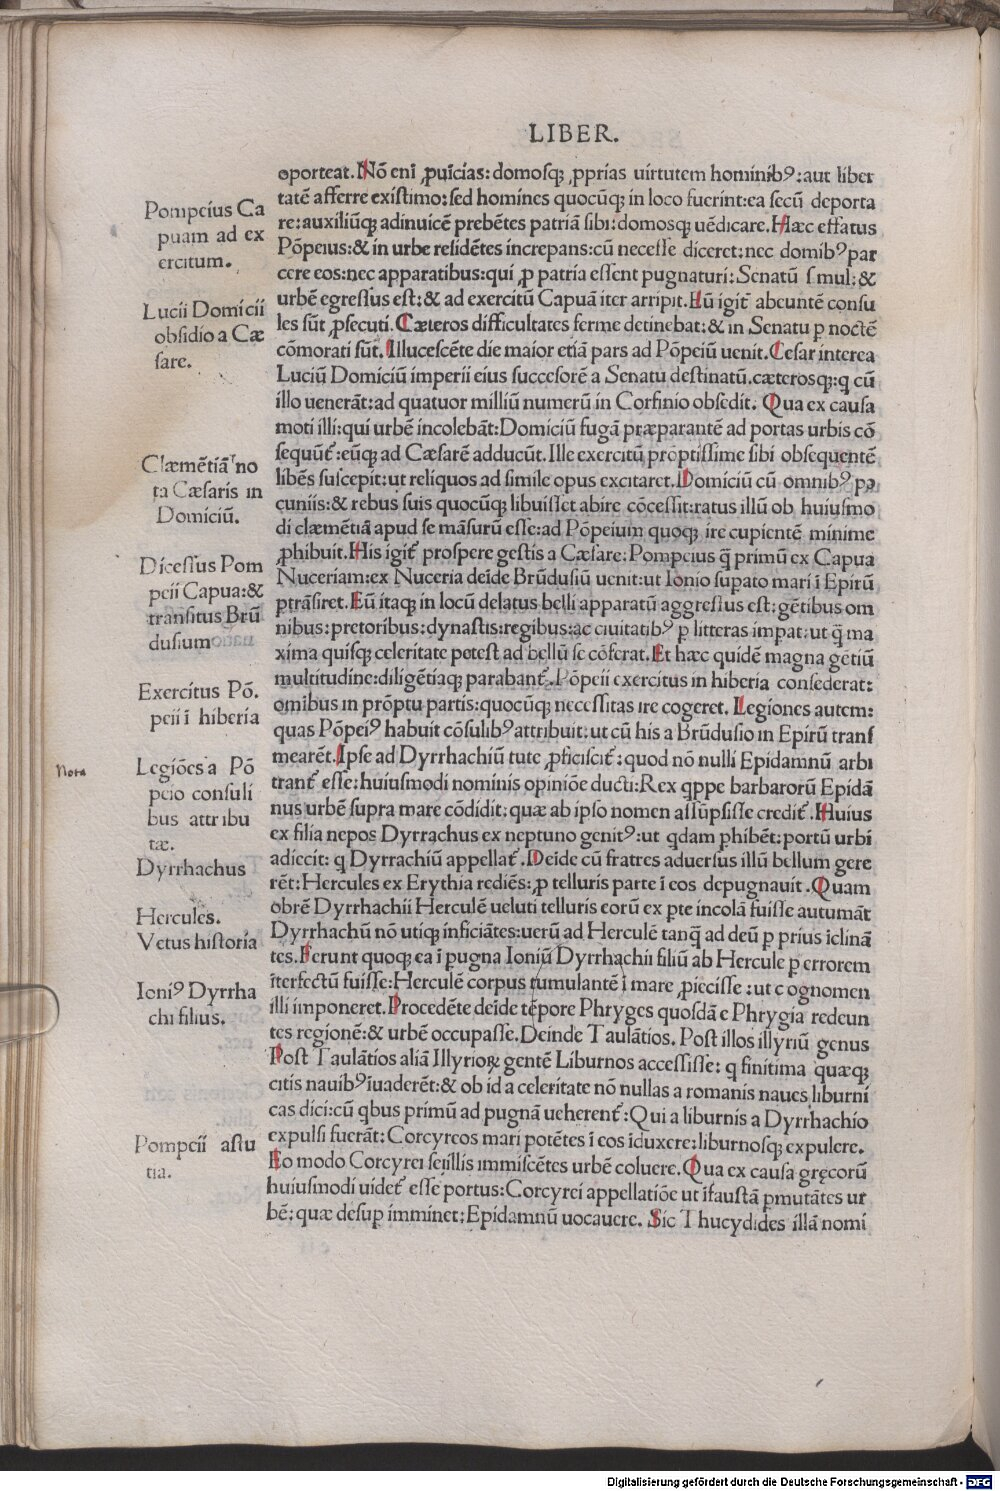 LIBER.
oporteat. Nō eni ꝓuīcias: domosqꝫ ꝓprias uirtutem hominibꝰ: aut liber
tatē afferre existimo: sed homines quocūqꝫ in loco fuerint: ea secū deporta
re: auxiliūqꝫ adinuicē prebētes patriā sibi: domosqꝫ uēdicare. Hæc effatus
Pōpeius: & in urbe residētes increpans: cū necesse diceret: nec domibꝰ par
cere eos: nec apparatibus: qui ꝓ patria essent pugnaturi: Senatū simul: &
urbē egressus est: & ad exercitū Capuā iter arripit. Eū igit᷑ abeuntē consu
les sūt ꝓsecuti. Cæteros difficultates ferme detinebat: & in Senatu p noctē
cōmorati sūt. Illucescēte die maior etiā pars ad Pōpeiū uenit. Cesar interea
Luciū Domiciū imperii eius succesorē a Senatu destinatū. cæterosqꝫ: q cū
illo uenerāt: ad quatuor milliū numerū in Corfinio obsedit. Qua ex causa
moti illi: qui urbē incolebāt: Domiciū fugā præparantē ad portas urbis cō
sequūt᷑: eūqꝫ ad Cæsarē adducūt. Ille exercitū prōptissime sibi obsequentē
libēs suscepit: ut reliquos ad simile opus excitaret. Domiciū cū omnibꝰ pe
cuniis: & rebus suis quocūqꝫ libuisset abire cōcessit: ratus illū ob huiusmo
di clæmētiā apud se māsurū esse: ad Pōpeium quoqꝫ ire cupientē minime
ꝓhibuit. His igit᷑ prospere gestis a Cæsare: Pompeius q̄ primū ex Capua
Nuceriam: ex Nuceria deīde Brūdusiū uenit: ut Ionio supato mari ī Epirū
ptrāsiret. Eū itaqꝫ in locū delatus belli apparatū aggressus est: gētibus om
nibus: pretoribus: dynastis: regibus: ac ciuitatibꝰ p litteras impat: ut q̄ ma
xima quisqꝫ celeritate potest ad bellū se cōferat. Et hæc quidē magna gētiū
multitudine: diligētiaqꝫ parabant᷑. Pōpeii exercitus in hiberia consederat:
omibus in prōptu partis: quocūqꝫ necessitas ire cogeret. Legiones autem:
quas Pōpeiꝰ habuit cōsulibꝰ attribuit: ut cū his a Brūdusio in Epirū trans
mearēt. Ipse ad Dyrrhachiū tute ꝓficiscit᷑: quod nō nulli Epidamnū arbi
trant᷑ esse: huiusmodi nominis opiniōe ducti: Rex qppe barbarorū Epidā
nus urbē supra mare cōdidit: quæ ab ipso nomen assūpsisse credit᷑. Huius
ex filia nepos Dyrrachus ex neptuno genitꝰ: ut qdam phibēt: portū urbi
adiecit: q Dyrrachiū appellat᷑. Deīde cū fratres aduersus illū bellum gere
rēt: Hercules ex Erythia rediēs: ꝓ telluris parte ī eos depugnauit. Quam
obrē Dyrrhachii Herculē ueluti telluris eorū ex pte incolā fuisse autumāt
Dyrrhachū nō utiqꝫ inficiātes: uerū ad Herculē tanq̄ ad deū p prius īclinā
tes. Ferunt quoqꝫ ea ī pugna Ioniū Dyrrhachii filiū ab Hercule p errorem
īterfectū fuisse: Herculē corpus tumulantē ī mare ꝓiecisse: ut cognomen
illi imponeret. Procedēte deīde tēpore Phryges quosdā e Phrygia redeun
tes regionē: & urbē occupasse. Deinde Taulātios. Post illos illyriū genus
Post Taulātios aliā Illyrioꝝ gentē Liburnos accessisse: q finitima quæqꝫ
citis nauibꝰ īuaderēt: & ob id a celeritate nō nullas a romanis naues liburni
cas dici: cū qbus primū ad pugnā ueherent᷑: Qui a liburnis a Dyrrhachio
expulsi fuerāt: Corcyreos mari potētes ī eos īduxere: liburnosqꝫ expulere.
Eo modo Corcyrei se illis immiscētes urbē coluere. Qua ex causa gręcorū
huiusmodi uidet᷑ esse portus: Corcyrei appellatiōe ut īfaustā pmutātes ur
bē: quæ desup imminet: Epidamnū uocauere. Sic Thucydides illā nomi
Pompeius Ca
puam ad ex
ercitum.
Lucii Domicii
obsidio a Cæ
sare.
Clæmētiā no
ta Cæsaris in
Domiciū.
Dicessus Pom
peii Capua: &
transitus Brū
dusium
Exercitus Pō.
peii ī hiberia
Nota
Legiōes a Pō
peio consuli
bus attribu
tæ.
Dyrrhachus
Hercules.
Vetus historia
Ioniꝰ Dyrrha
chi filius.
Pompeii astu
tia.
Digitalisierung gefördert durch die Deutsche Forschungsgemeinschaft - DFG